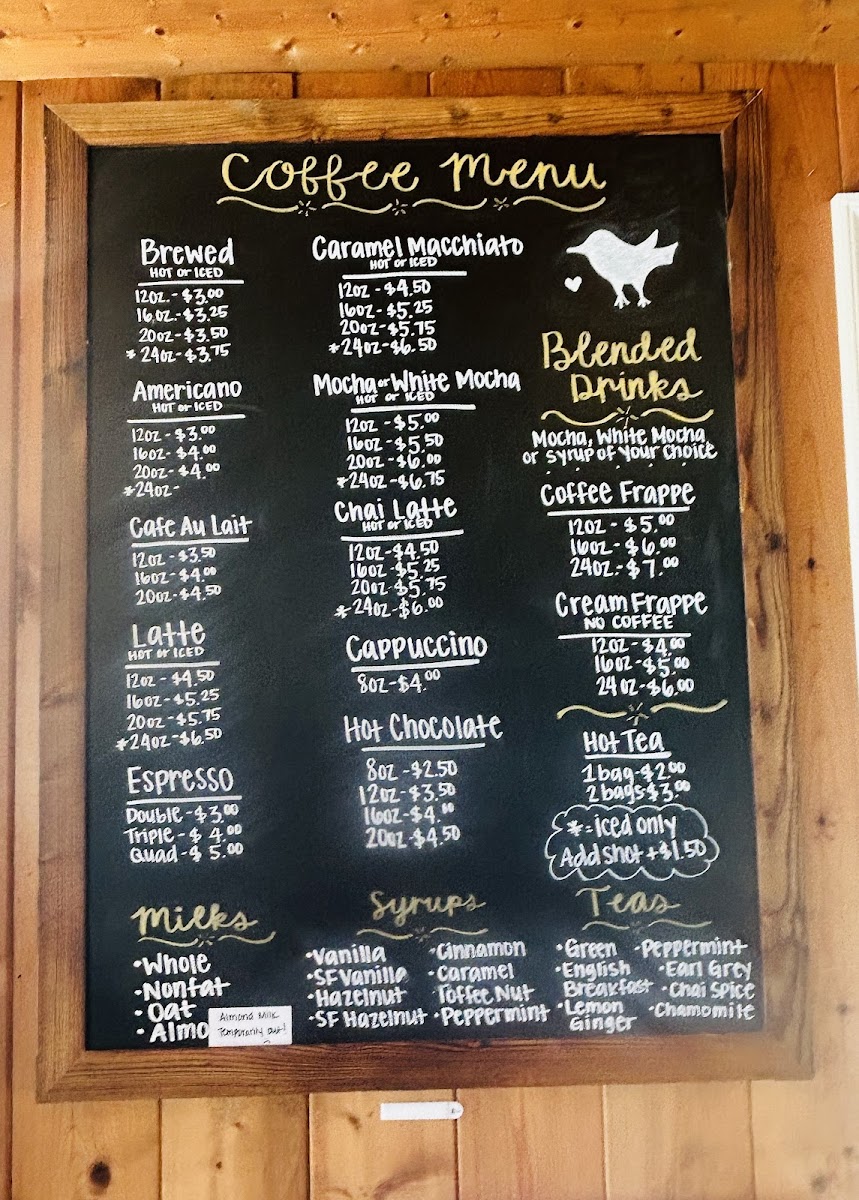 Coffee Menu
Brewed
HOT or ICED
12oz. - $3.00
16.oz. - $3.25
20oz - $3.50
* 24oz - $3.75
Americano
HOT or ICED
12oz - $3.00
16oz - $4.00
20oz - $4.00
*24oz -
Cafe Au Lait
12oz - $3.50
16oz - $4.00
20oz - $4.50
Latte
HOT or ICED
12oz - $4.50
16oz - $5.25
20oz - $5.75
*24oz - $6.50
Espresso
Double - $3.00
Triple - $4.00
Quad - $5.00
Caramel Macchiato
HOT or ICED
12oz - $4.50
16oz - $5.25
20oz - $5.75
*24oz - $6.50
Mocha or White Mocha
HOT or ICED
12oz - $5.00
16oz - $5.50
20oz - $6.00
*24oz - $6.75
Chai Latte
HOT or ICED
12oz - $4.50
16oz - $5.25
20oz - $5.75
*24oz - $6.00
Cappuccino
8oz - $4.00
Hot Chocolate
8oz - $2.50
12oz - $3.50
16oz - $4.00
20oz - $4.50
Blended
Drinks
Mocha, White Mocha,
or syrup of your choice
Coffee Frappe
12oz - $5.00
16oz - $6.00
24oz. - $7.00
Cream Frappe
NO COFFEE
12oz - $4.00
16oz - $5.00
24oz - $6.00
Hot Tea
1 bag - $2.00
2 bags $3.00
* = iced only
Add shot + $1.50
Milks
• Whole
• Nonfat
• Oat
• Almo
Almond Milk
Temporarily out!
Syrups
• Vanilla
• SF Vanilla
• Hazelnut
• SF Hazelnut
• Cinnamon
• Caramel
Toffee Nut
• Peppermint
Teas
• Green
• English
Breakfast
• Lemon
Ginger
• Peppermint
• Earl Grey
• Chai Spice
• Chamomile